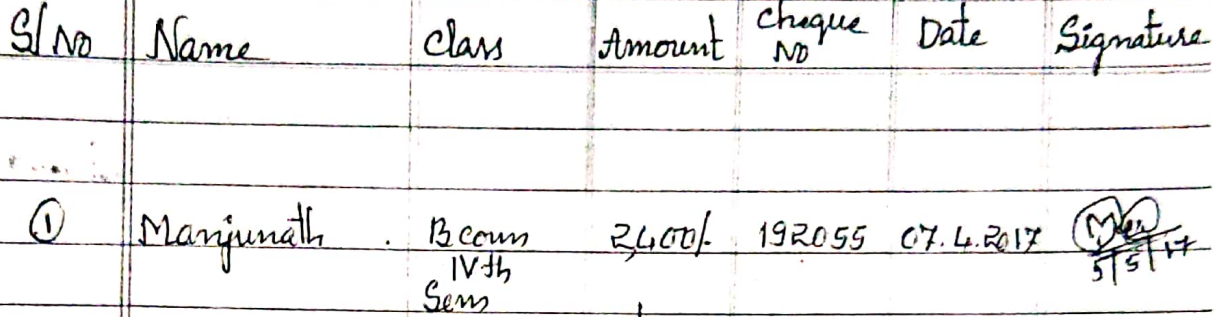 Sl No Name Class Amount Cheque No Date Signature
① Manjunath . Bcom 2,400/- 192055 07.4.2017
IVth 5/5/17
Sem